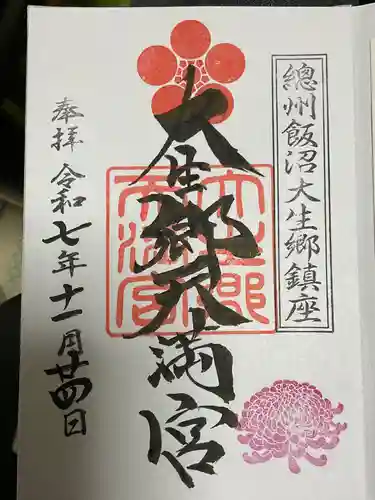 總州飯沼大生郷鎮座
大生郷天満宮
奉拝
令和七年十一月廿四日
大生郷
天満宮